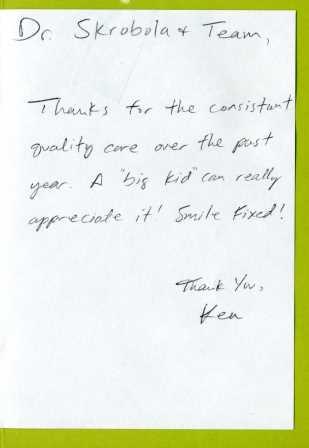 Dr. Skrobola & Team,
Thanks for the consistant
quality care over the past
year. A "big kid" can really
appreciate it! Smile Fixed!
Thank You,
Ken